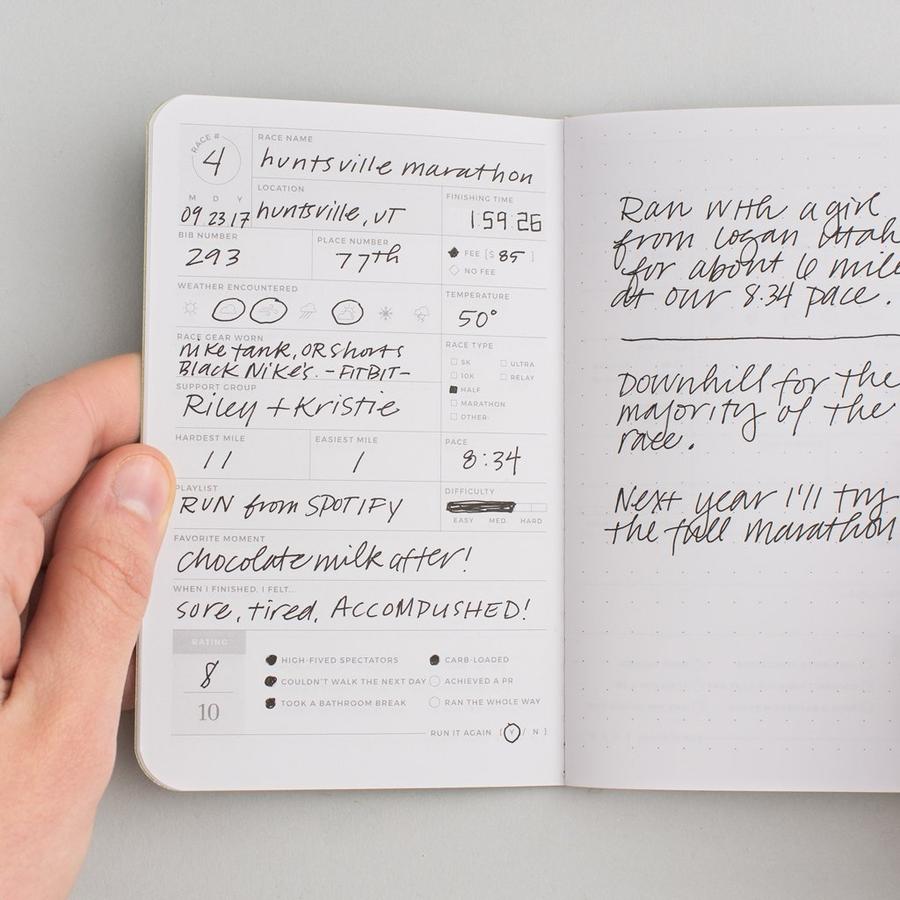 RACE #
4
RACE NAME
huntsville marathon
M D Y
09 23 17
LOCATION
huntsville, UT
FINISHING TIME
1 59 26
BIB NUMBER
293
PLACE NUMBER
77th
FEE [$ 85 ]
NO FEE
WEATHER ENCOUNTERED
TEMPERATURE
50°
RACE GEAR WORN
Nike tank, OR shorts
Black Nike's. -FITBIT-
RACE TYPE
5K
ULTRA
10K
RELAY
HALF
MARATHON
OTHER
SUPPORT GROUP
Riley + Kristie
HARDEST MILE
11
EASIEST MILE
1
PACE
8:34
PLAYLIST
RUN from SPOTIFY
DIFFICULTY
EASY MED. HARD
FAVORITE MOMENT
chocolate milk after!
WHEN I FINISHED, I FELT...
sore, tired, ACCOMPLISHED!
RATING
8
10
HIGH-FIVED SPECTATORS
CARB-LOADED
COULDN'T WALK THE NEXT DAY
ACHIEVED A PR
TOOK A BATHROOM BREAK
RAN THE WHOLE WAY
RUN IT AGAIN [ Y / N ]
Ran with a girl
from Logan Utah
for about 6 mile
at our 8:34 pace.
Downhill for the
majority of the
race.
Next year I'll try
the full marathon